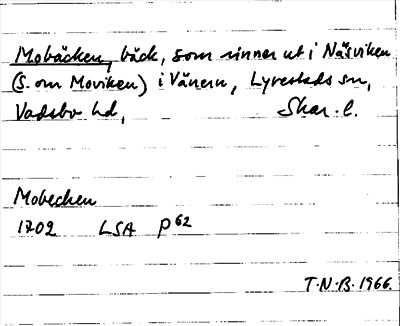 Mobäcken, bäck, som rinner ut i Näsviken
(S. om Moviken) i Vänern, Lyrestads sn,
Vadsbo hd, Skar. l.
Mobecken
1702 LSA P 62
T.N.B. 1966.